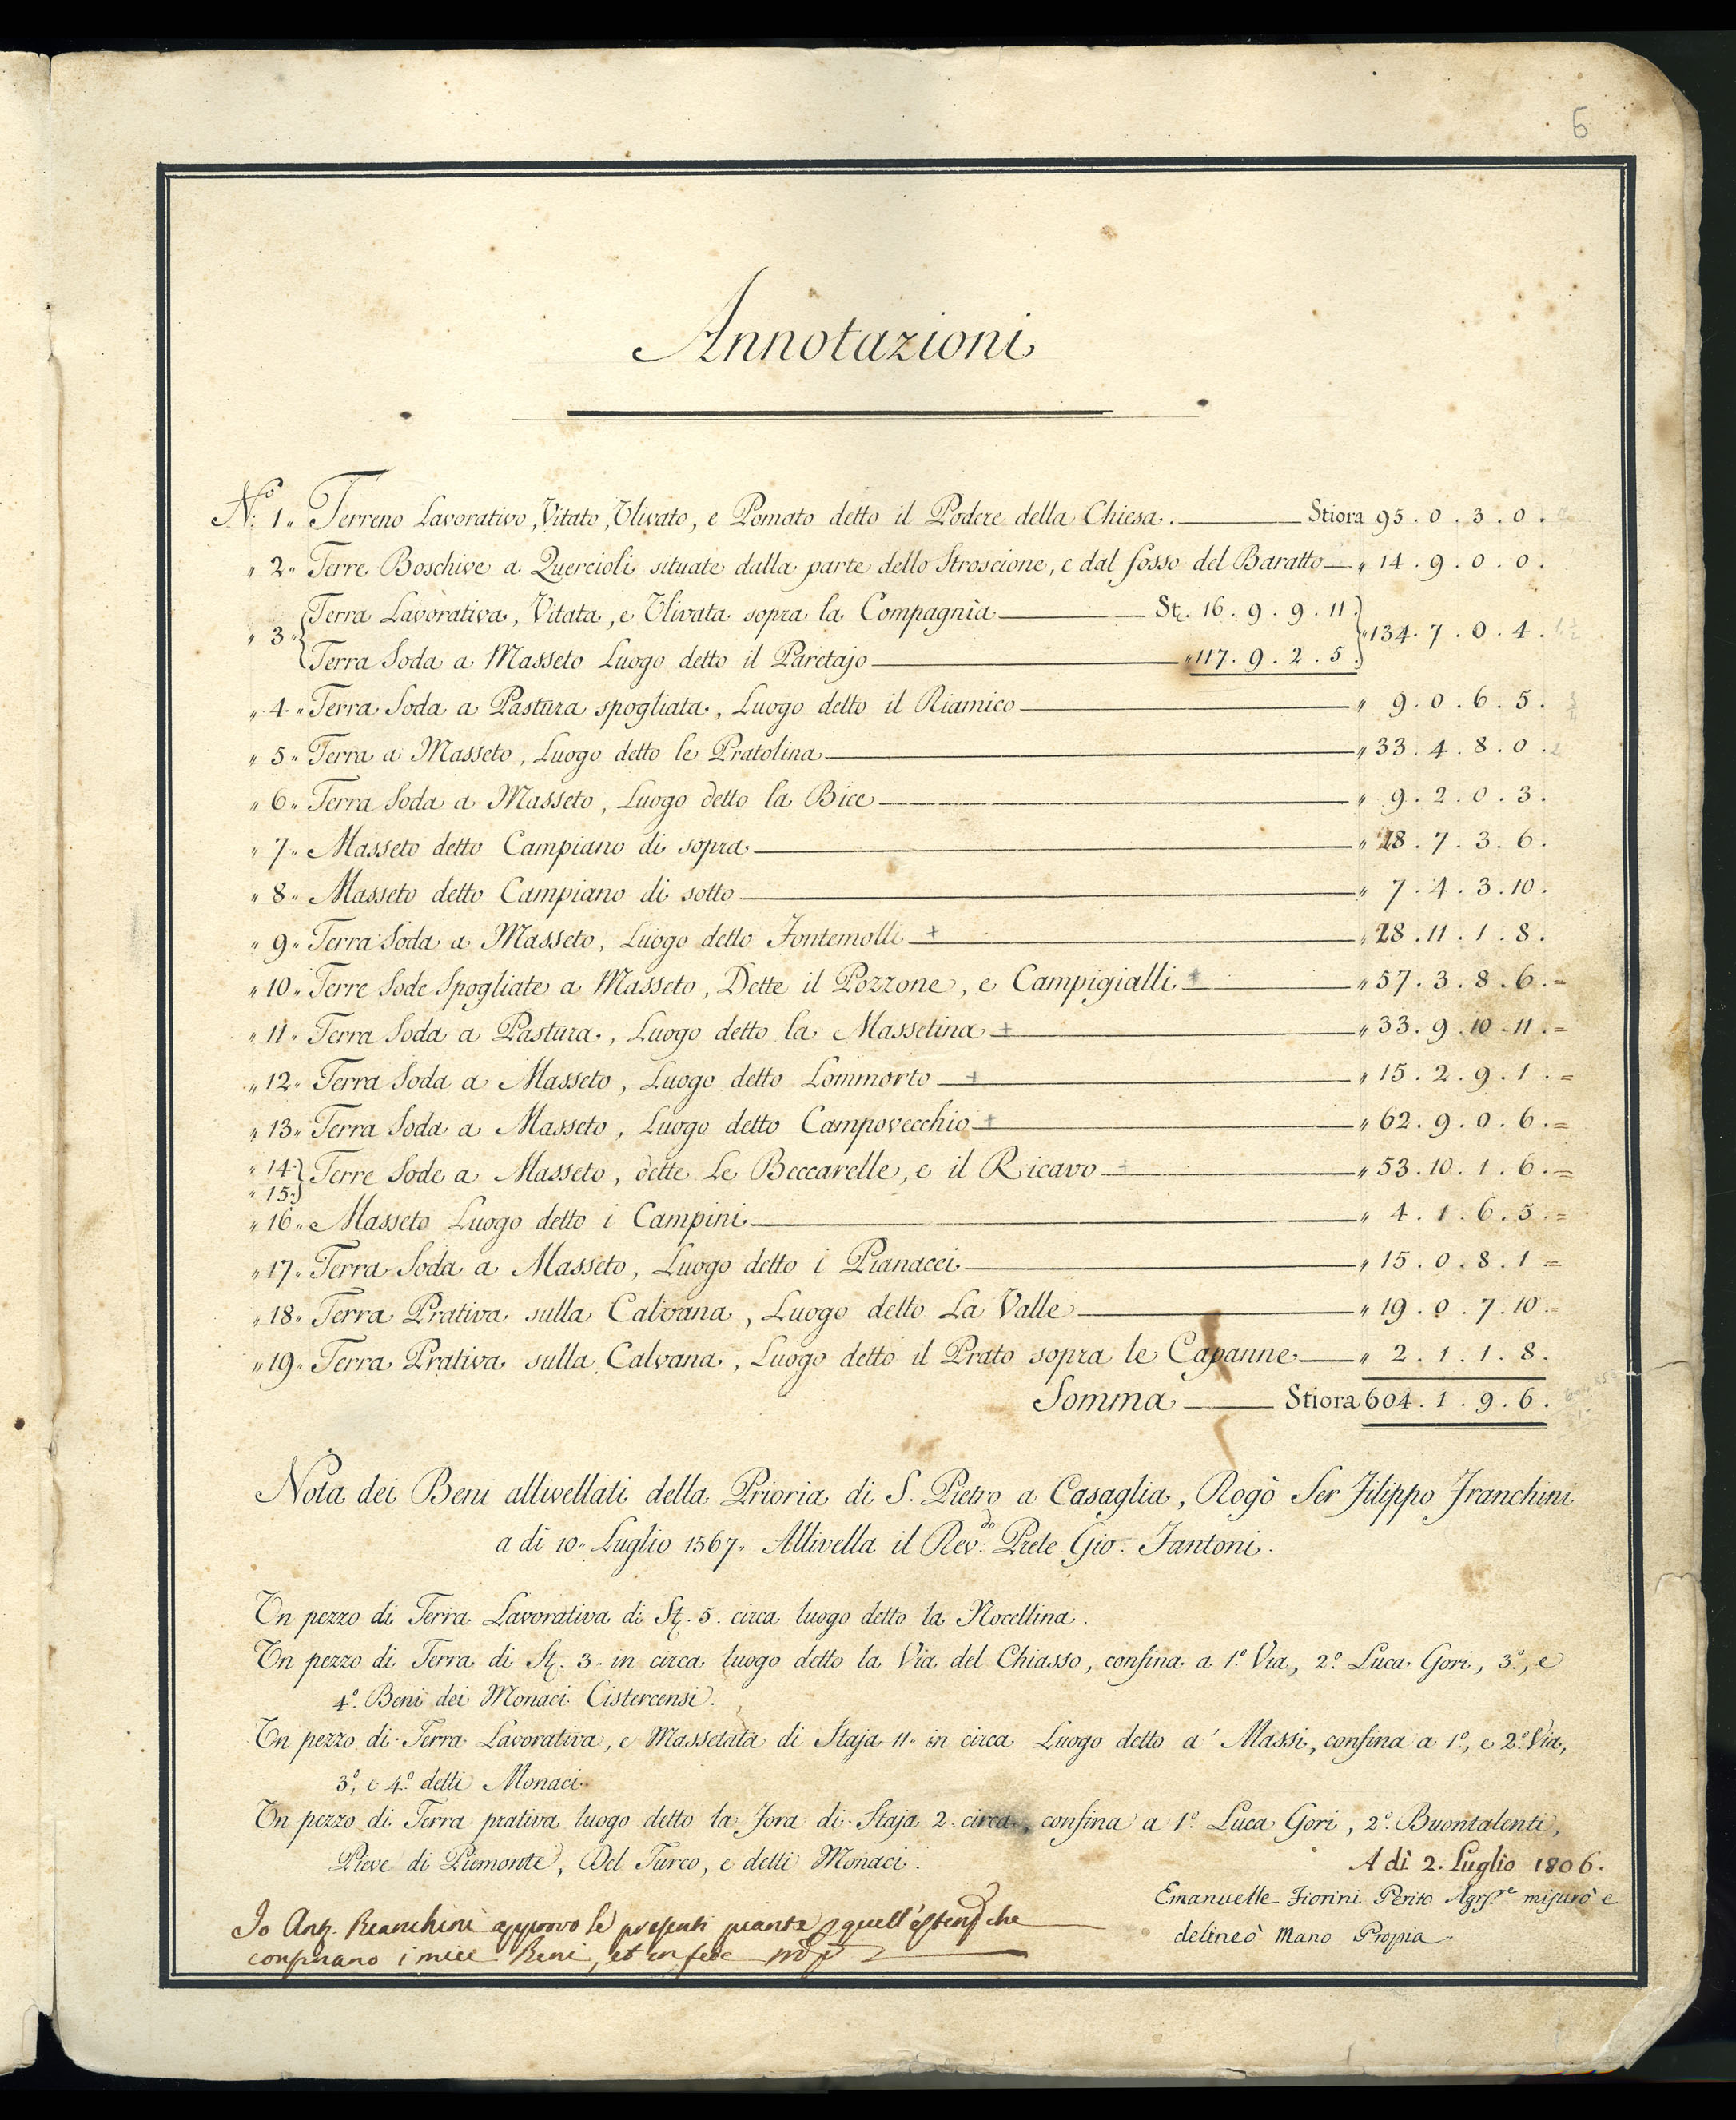 6
Annotazioni
N.º 1.. Terreno Lavorativo, Vitato, Ulivato, e Pomato detto il Podere della Chiesa. Stiora 95 . 0 . 3 . 0 .
" 2.. Terre Boschive a Quercioli situate dalla parte dello Stroscione, e dal fosso del Baratto " 14 . 9 . 0 . 0 .
Terra Lavorativa, Vitata, e Ulivata sopra la Compagnia St. 16 . 9 . 9 . 11 .
" 3.. " 134 . 7 . 0 . 4 .
Terra Soda a Masseto Luogo detto il Paretajo " 117 . 9 . 2 . 5 .
" 4.. Terra Soda a Pastura spogliata, Luogo detto il Riamico " 9 . 0 . 6 . 5 .
" 5.. Terra a Masseto, Luogo detto le Pratolina " 33 . 4 . 8 . 0 .
" 6.. Terra Soda a Masseto, Luogo detto la Bice " 9 . 2 . 0 . 3 .
" 7.. Masseto detto Campiano di sopra " 18 . 7 . 3 . 6 .
" 8.. Masseto detto Campiano di sotto " 7 . 4 . 3 . 10 .
" 9.. Terra Soda a Masseto, Luogo detto Fontemolli + " 18 . 11 . 1 . 8 .
" 10.. Terre Sode Spogliate a Masseto, Dette il Pozzone, e Campigialli + " 57 . 3 . 8 . 6 . =
" 11.. Terra Soda a Pastura, Luogo detto la Massetina + " 33 . 9 . 10 . 11 . =
" 12.. Terra Soda a Masseto, Luogo detto Lommorto + " 15 . 2 . 9 . 1 . =
" 13.. Terra Soda a Masseto, Luogo detto Campovecchio + " 62 . 9 . 0 . 6 . =
" 14.. Terre Sode a Masseto, dette Le Beccarelle, e il Ricavo + " 53 . 10 . 1 . 6 . =
" 15..
" 16.. Masseto Luogo detto i Campini " 4 . 1 . 6 . 5 . =
" 17.. Terra Soda a Masseto, Luogo detto i Pianacci " 15 . 0 . 8 . 1 =
" 18.. Terra Prativa sulla Calvana, Luogo detto La Valle " 19 . 0 . 7 . 10 . =
" 19.. Terra Prativa sulla Calvana, Luogo detto il Prato sopra le Capanne " 2 . 1 . 1 . 8 .
Somma Stiora 604 . 1 . 9 . 6 .
Nota dei Beni allivellati della Prioria di S. Pietro a Casaglia, Rogò Ser Filippo Franchini
a di 10.. Luglio 1567.. Allivella il Rev.do Prete Gio: Fantoni.
Un pezzo di Terra Lavorativa di St. 5. circa luogo detto la Nocellina.
Un pezzo di Terra di St. 3. in circa luogo detto la Via del Chiasso, confina a 1.º Via, 2.º Luca Gori, 3.º, e
4.º Beni dei Monaci Cistercensi.
Un pezzo di Terra Lavorativa, e Massetata di Staja 11.. in circa Luogo detto a' Massi, confina a 1.º, e 2.º Via,
3.º, e 4.º detti Monaci.
Un pezzo di Terra prativa luogo detto la Fora di Staja 2. circa, confina a 1.º Luca Gori, 2.º Buontalenti,
Pieve di Piemonte, Del Turco, e detti Monaci.
A dì 2. Luglio 1806.
Emanuelle Fiorini Perito Agr.re misurò e
delineò Mano Propia
Io Ant. Bianchini approvo le presenti piante quell' che
confinano i miei Beni, et in fede